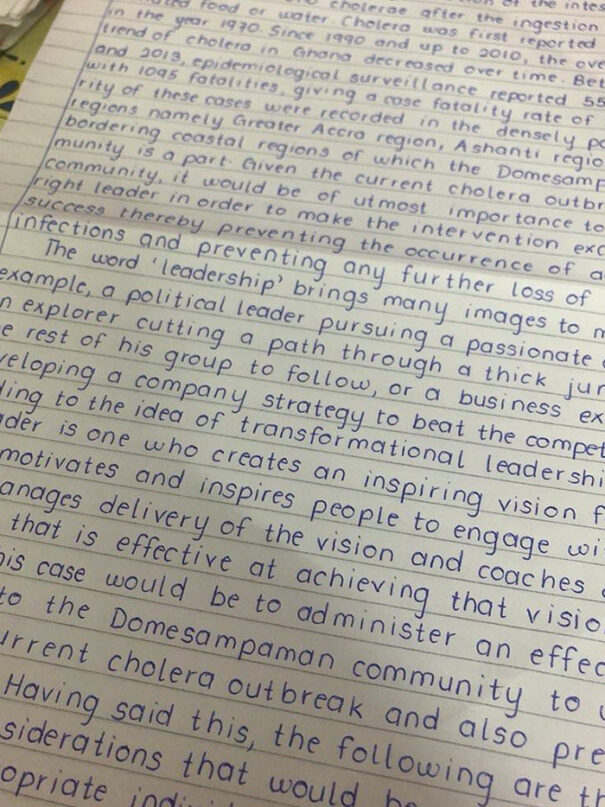 of the intes
food or water. Cholera was first reported
cholerae after the ingestion
in the year 1970. Since 1990 and up to 2010, the ove
trend of cholera in Ghana decreased over time. Bet
and 2013, epidemiological surveillance reported 55
with 1095 fatalities, giving a case fatality rate of
rity of these cases were recorded in the densely po
regions namely Greater Accra region, Ashanti regio
bordering coastal regions of which the Domesamp
munity is a part. Given the current cholera outbr
community, it would be of utmost importance to
right leader in order to make the intervention exc
success thereby preventing the occurrence of a
infections and preventing any further loss of
The word 'leadership' brings many images to m
example, a political leader pursuing a passionate
n explorer cutting a path through a thick jun
e rest of his group to follow, or a business ex
veloping a company strategy to beat the compet
ding to the idea of transformational leadershi
der is one who creates an inspiring vision f
motivates and inspires people to engage wi
anages delivery of the vision and coaches
that is effective at achieving that visio
his case would be to administer an effec
to the Domesampaman community to
urrent cholera outbreak and also pre
Having said this, the following are th
siderations that would be
opriate indi